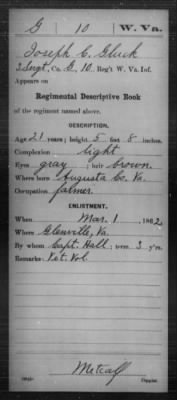 G | 10 | W. Va.
Joseph C. Gluck
2 Sergt, Co. G, 10 Reg't W. Va. Inf.
Appears on
Regimental Descriptive Book
of the regiment named above.
DESCRIPTION.
Age 21 years; height 5 feet 8 inches.
Complexion light
Eyes gray; hair brown.
Where born Augusta Co. Va.
Occupation farmer.
ENLISTMENT.
When Mar. 1, 1862.
Where Glenville, Va.
By whom Capt. Hall; term 3 y'rs.
Remarks: Vet. Vol.
Metcalf
Copyist.